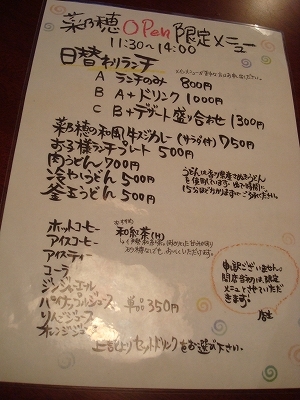 菜乃穂 OPen 限定メニュー
11:30~14:00
日替わりランチ
A ランチのみ 800円
B A+ドリンク 1000円
C B+デザート盛り合わせ 1300円
菜乃穂の和風牛スジカレー(サラダ付) 750円
お子様ランチプレート 500円
肉うどん 700円
冷やしうどん 500円
釜玉うどん 500円
ホットコーヒー
アイスコーヒー
アイスティー
コーラ
ジンジャエール
パイナップルジュース
りんごジュース
オレンジジュース
おすすめ
和紅茶(H)
単品 350円
申訳ございません。
開店当初は、限定
メニューとさせていただ
きます。
店主
上記よりセットドリンクをお選び下さい。